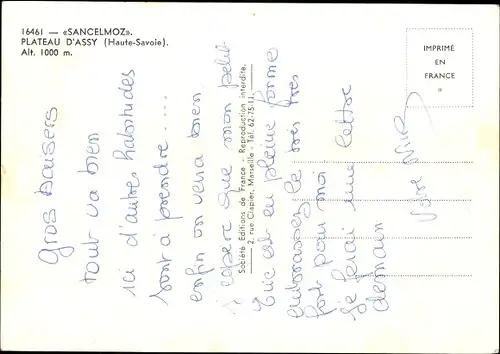 16461 — «SANCELMOZ».
PLATEAU D'ASSY (Haute-Savoie).
Alt. 1000 m.
IMPRIMÉ
EN
FRANCE
Société Editions de France - Reproduction interdite.
2, rue Clapier, Marseille - Tél. 62-75-11.
Gros baisers
tout va bien
ici d'autres habitudes
sont à prendre.....
enfin on verra bien
J'espère que mon petit
Eric est en pleine forme
embrassez le très très
fort pour moi
Je ferai une lettre
demain
Votre